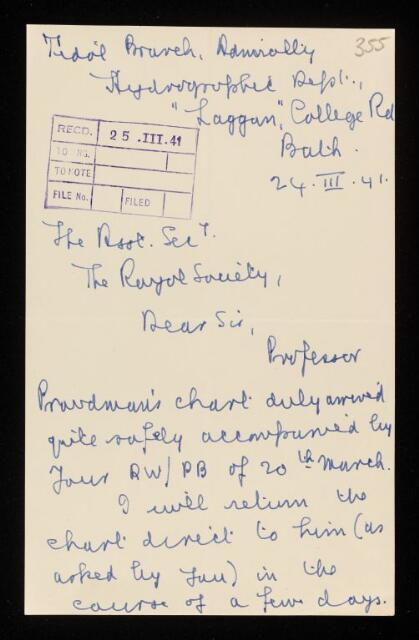 355
Tidal Branch, Admiralty
Hydrographic Dept.,
"Laggan", College Rd
Bath.
24. III. 41.
RECD. 25 .III.41
TO NS.
TO NOTE
FILE No. FILED
The Asst. Secy.
The Royal Society,
Dear Sir,
Professor
Proudman's chart duly arrived
quite safely accompanied by
your RW/PB of 20th March.
I will return the
chart direct to him (as
asked by you) in the
course of a few days.